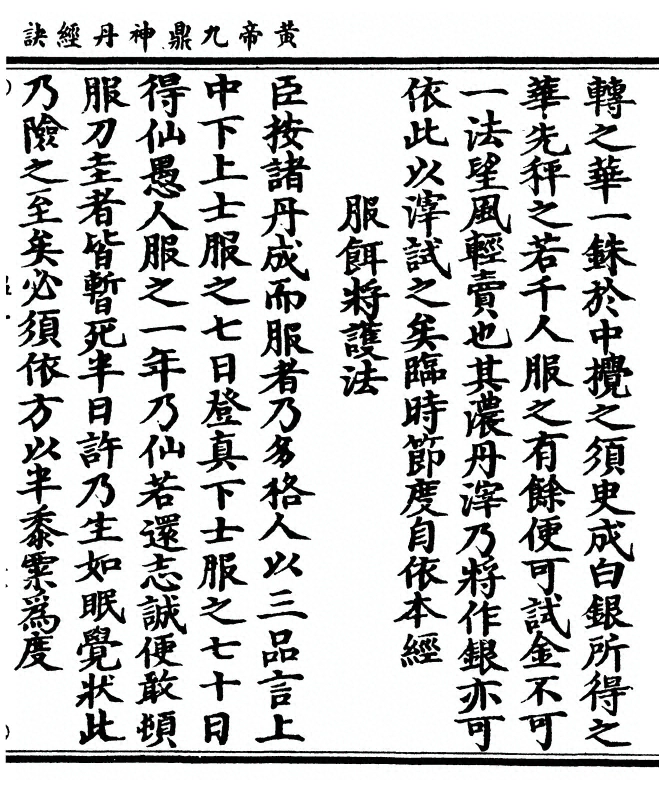 黃帝九鼎神丹經訣
轉之華一銖於中攪之須臾成白銀所得之
華先秤之若千人服之有餘便可試金不可
一法望風輕賣也其濃丹滓乃將作銀亦可
依此以滓試之矣臨時節度自依本經
服餌將護法
臣按諸丹成而服者乃多格人以三品言上
中下上士服之七日登真下士服之七十日
得仙愚人服之一年乃仙若還志誠便敢頓
服刀圭者皆暫死半日許乃生如眠覺狀此
乃險之至矣必須依方以半黍粟為度